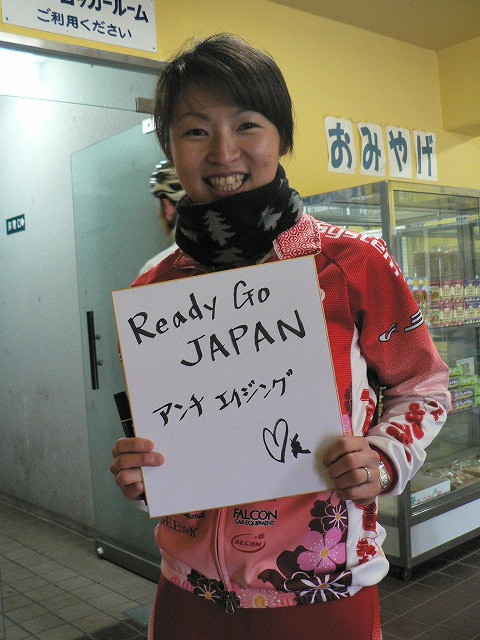 ロッカールーム
ご利用ください
おみやげ
Ready Go
JAPAN
アンチ エイジング
FALCON
CAR EQUIPMENT
RECON